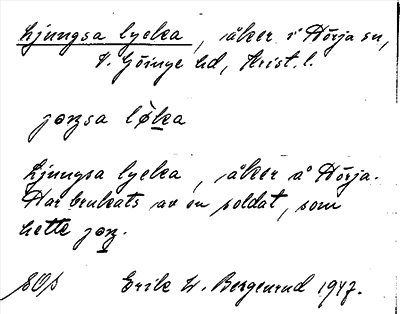 Ljungsa lycka, åker i Hörja sn,
V. Göinge hd, Krist. l.
jɔŋsa løka
Ljungsa lycka, åker å Hörja.
Har brukats av en soldat, som
hette jɔŋ.
Erik W. Bergenrud 1947.